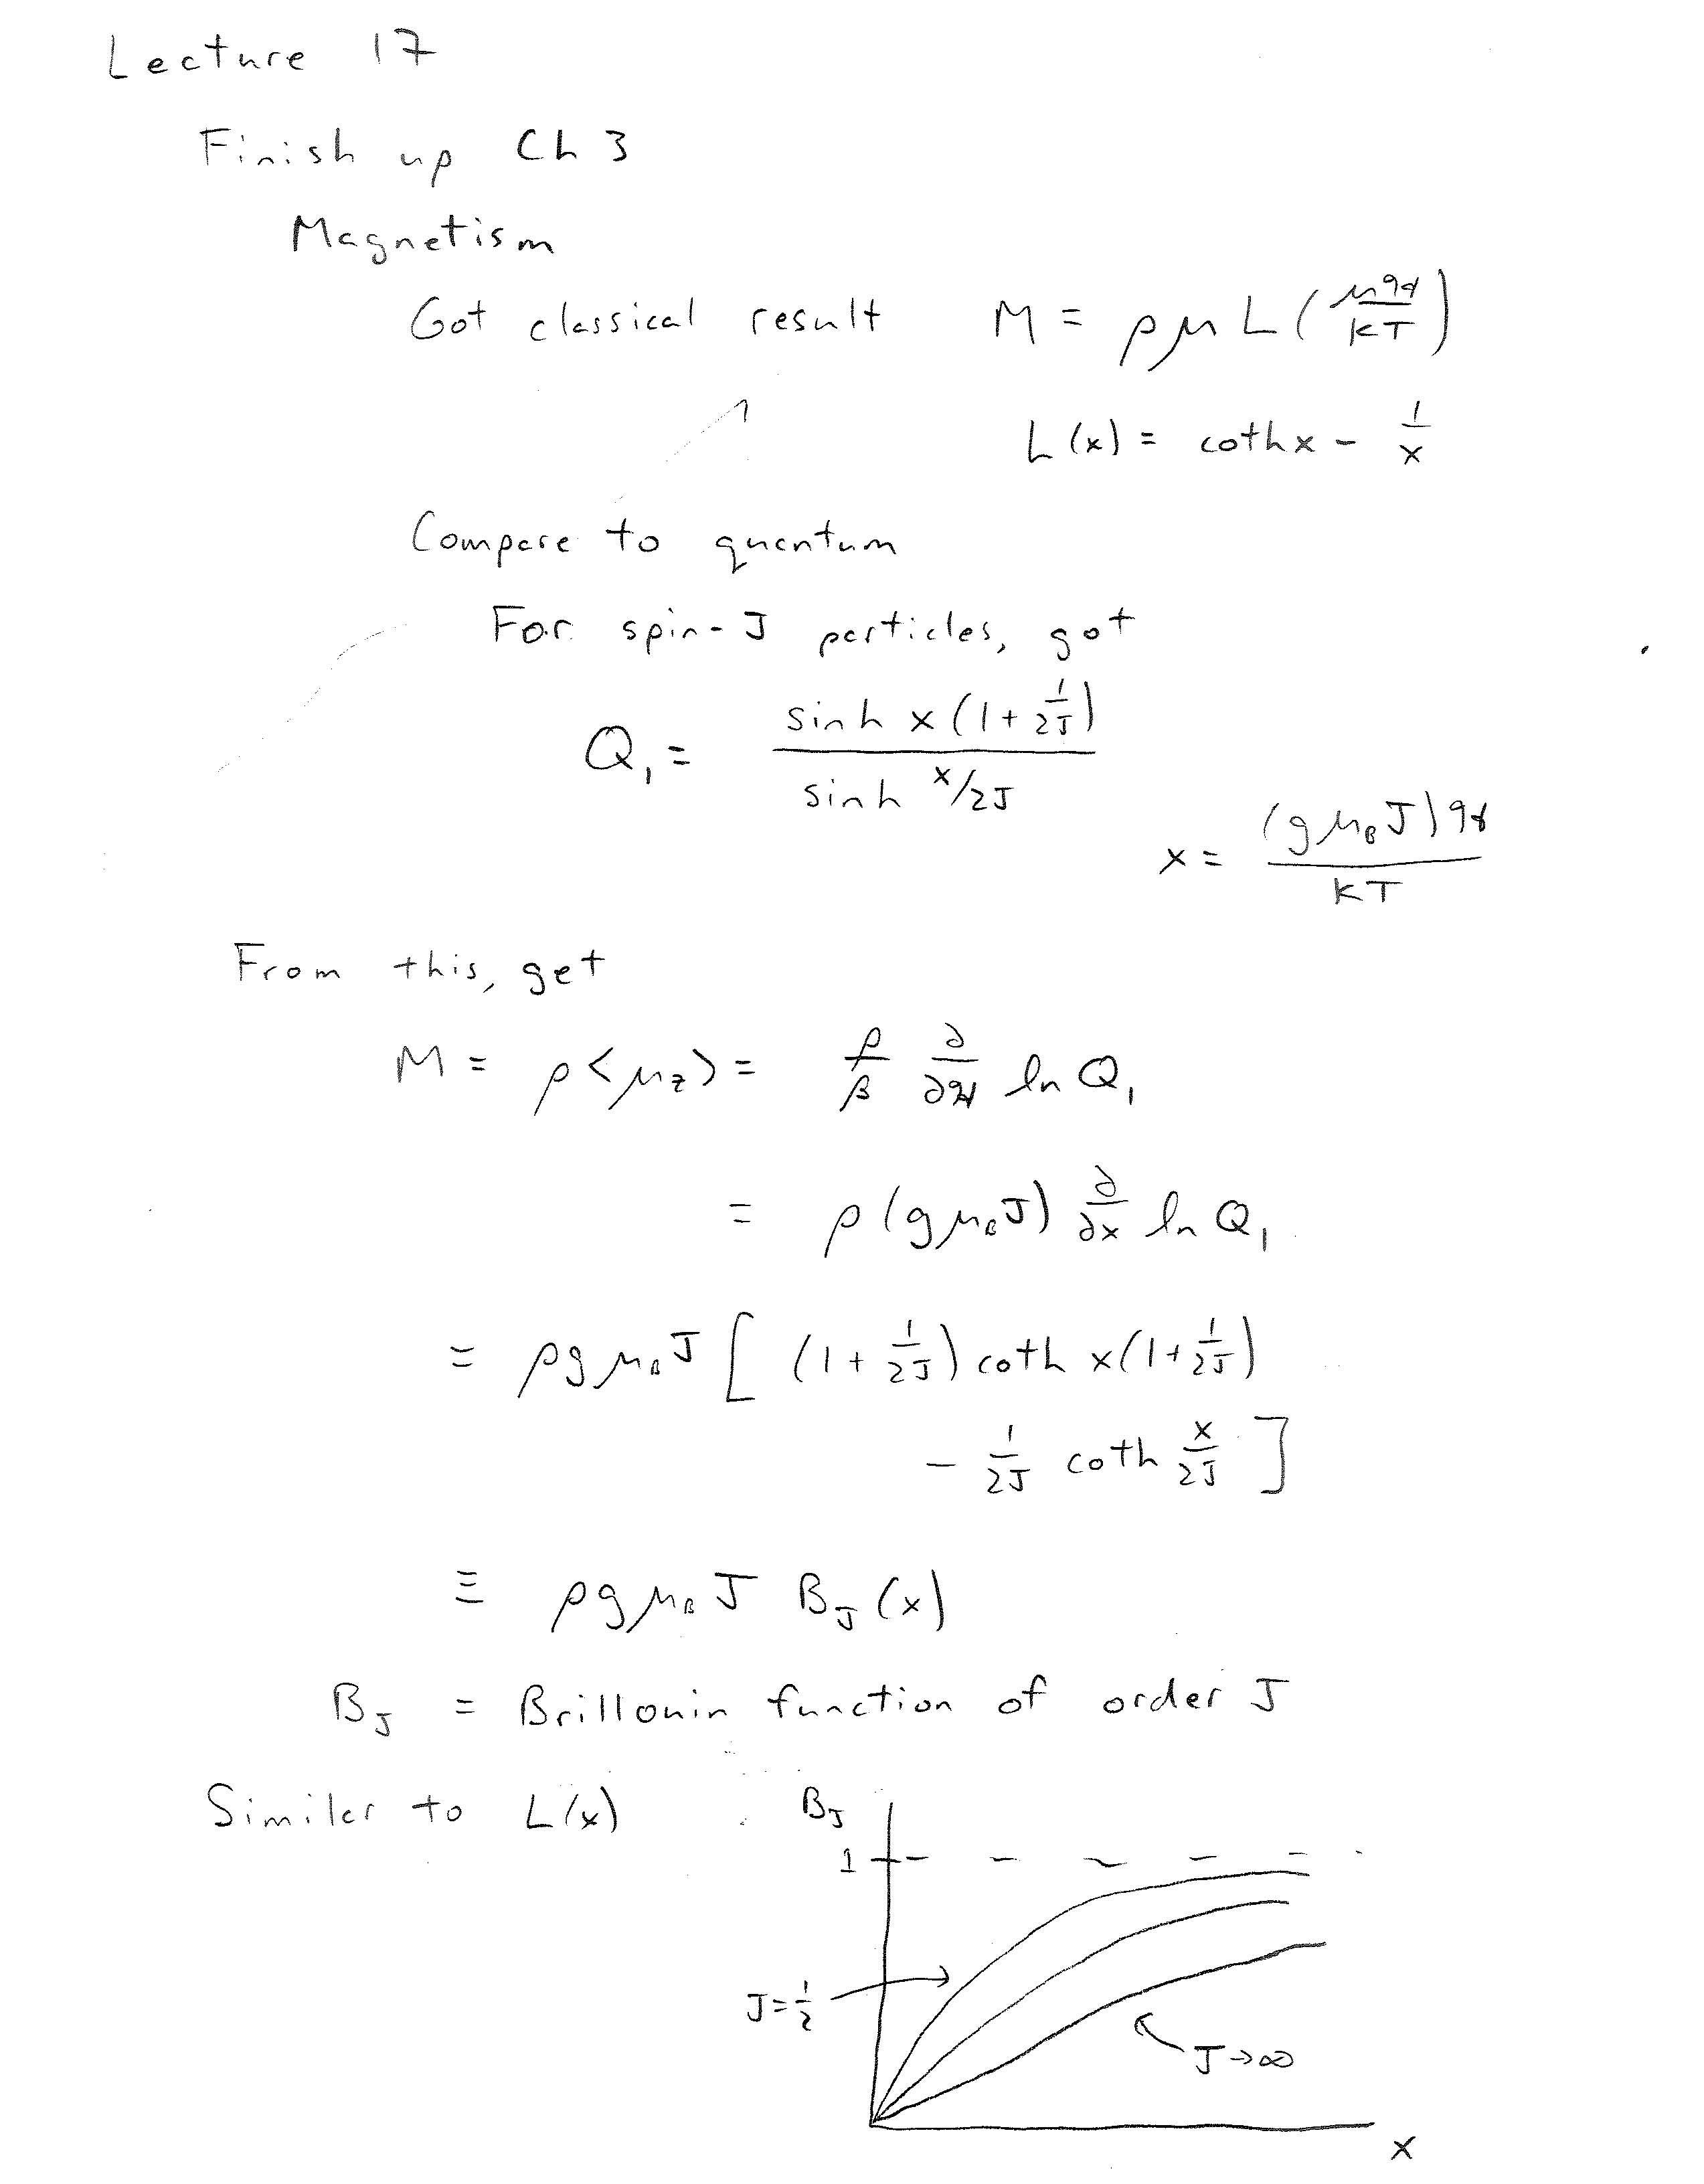 Lecture 17
Finish up Ch 3
Magnetism
Got classical result M = ρμ L(μℋ/kT)
L(x) = coth x - 1/x
Compare to quantum
For spin-J particles, got
Q₁ = sinh x(1 + 1/2J) / sinh x/2J
x = (gμ_B J)ℋ / kT
From this, get
M = ρ<μ_z> = ρ/β ∂/∂ℋ ln Q₁
= ρ(gμ_B J) ∂/∂x ln Q₁
= ρgμ_B J [ (1 + 1/2J) coth x(1 + 1/2J)
- 1/2J coth x/2J ]
≡ ρgμ_B J B_J(x)
B_J = Brillouin function of order J
Similar to L(x)
B_J
1
J = 1/2
J→∞
x